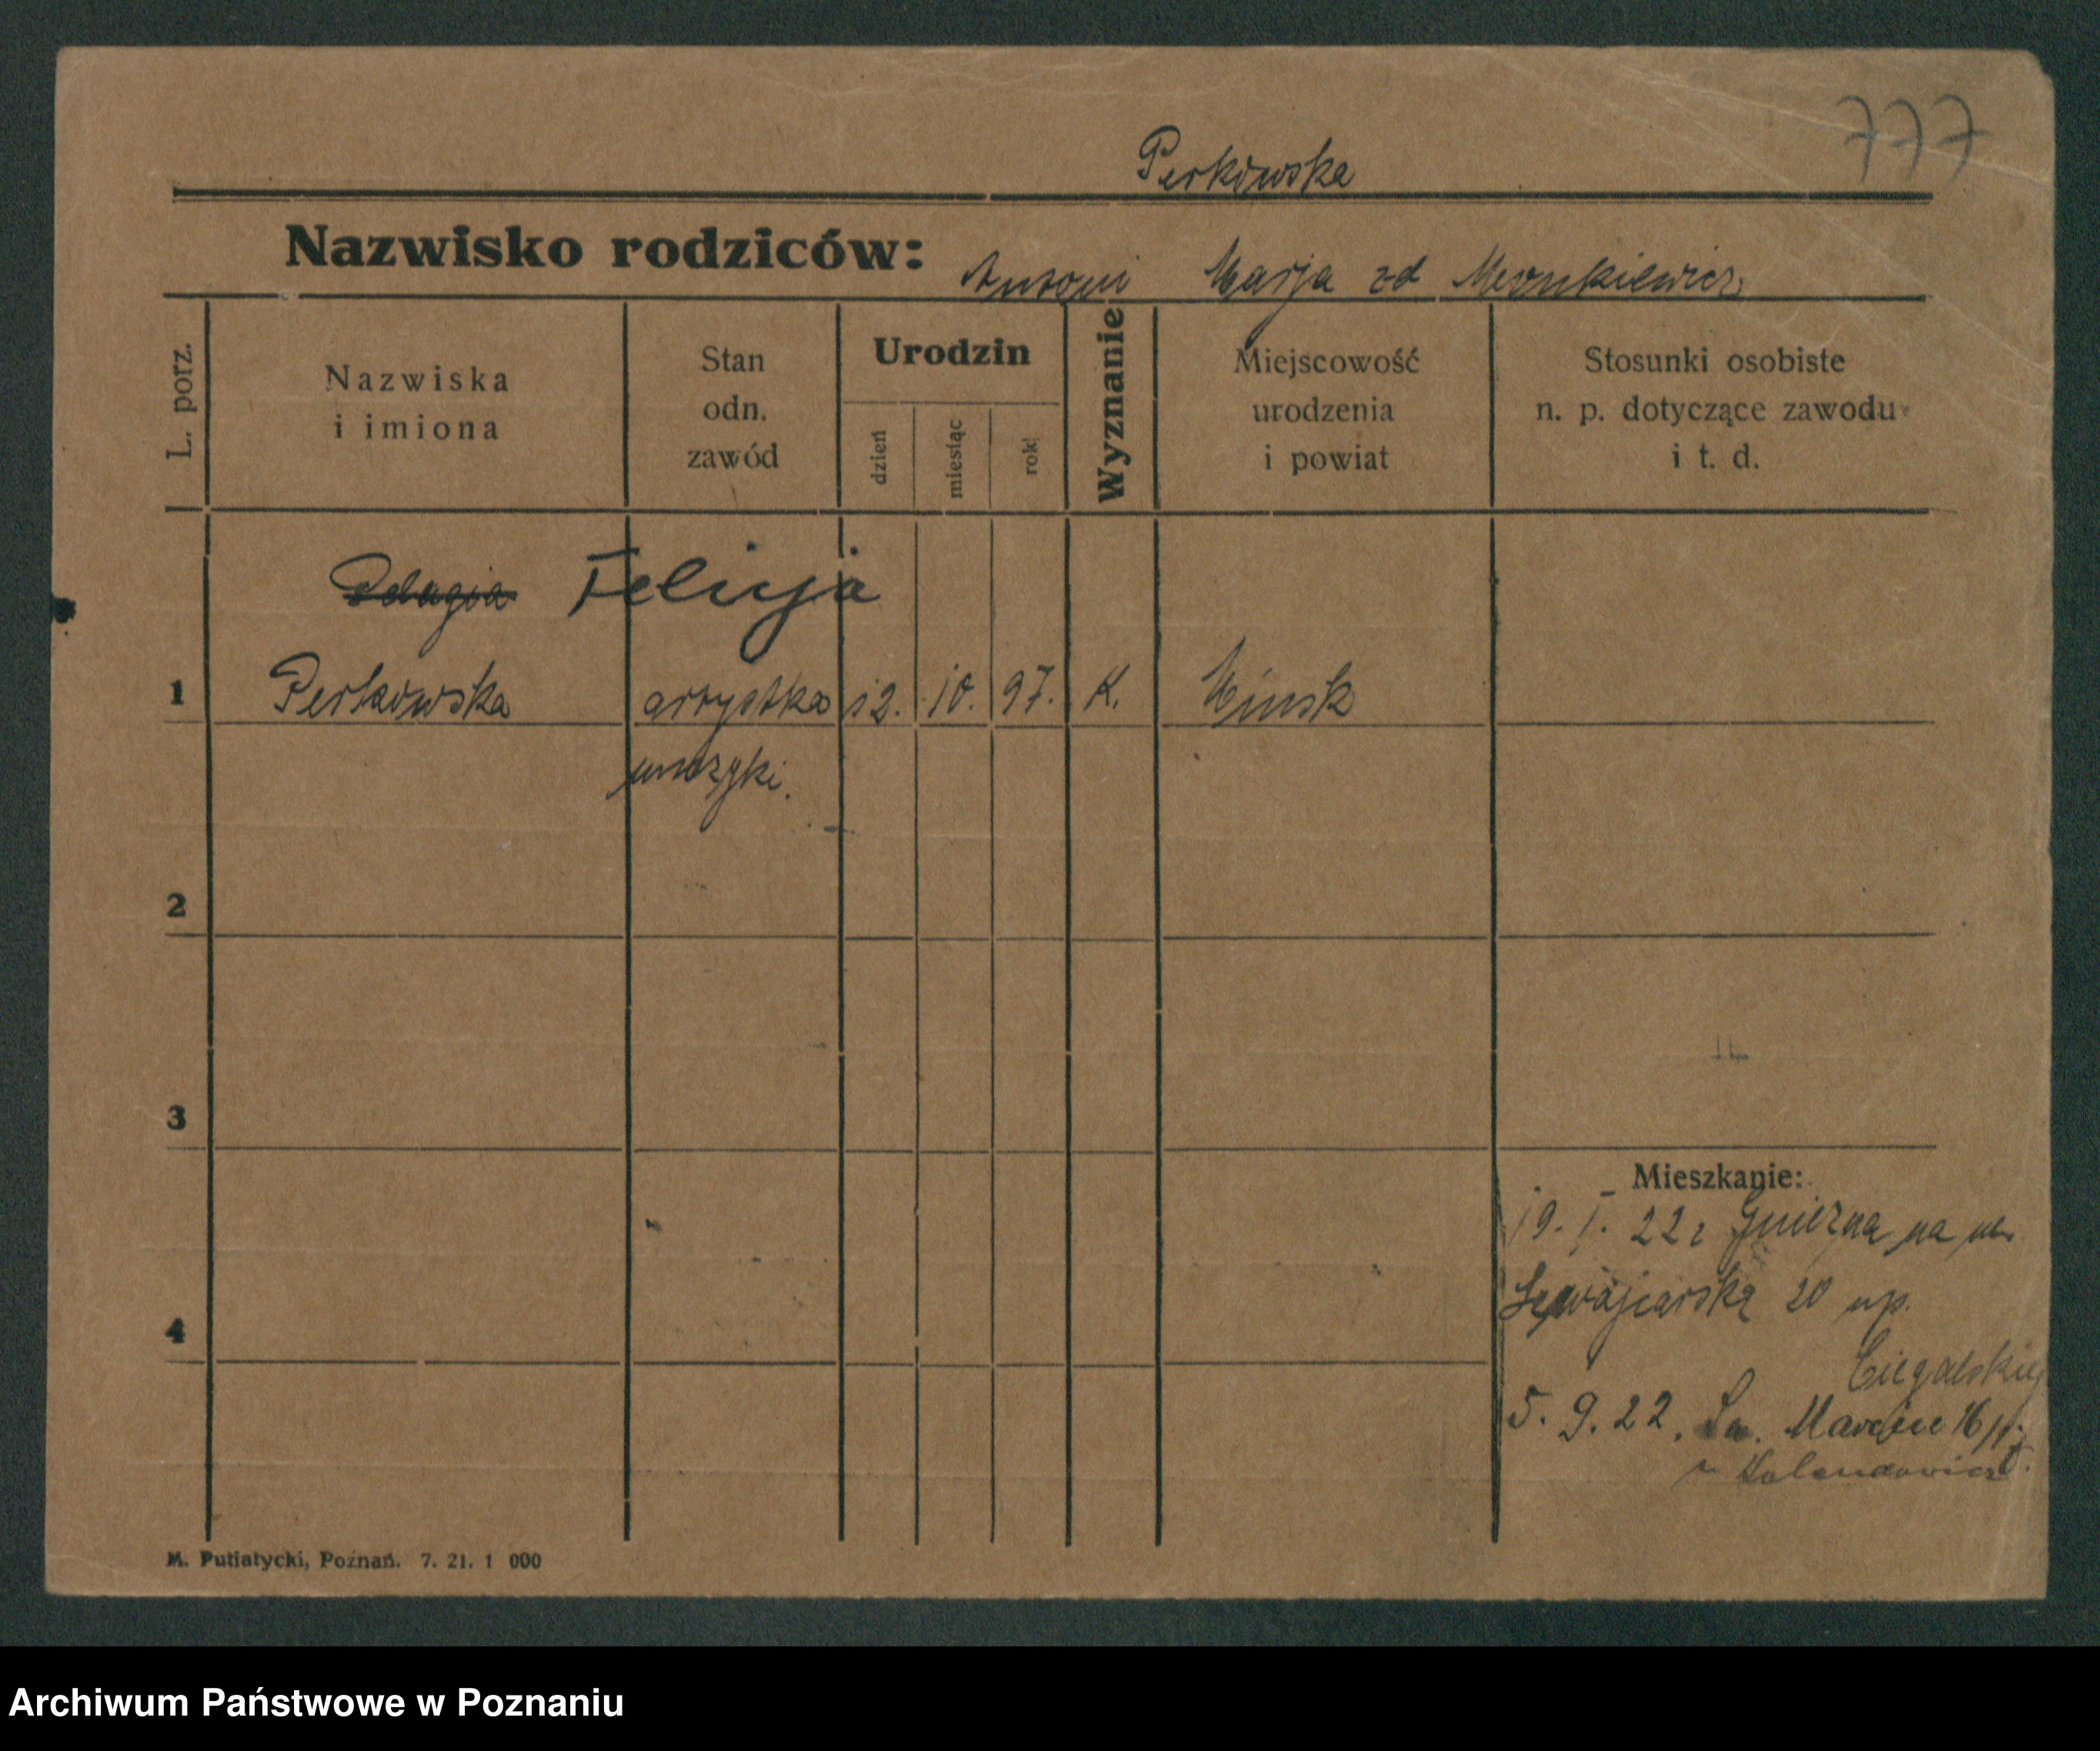 777
Perkowska
Nazwisko rodziców: Antoni Marja zd
L. porz.
Nazwiska i imiona
Stan odn. zawód
Urodzin
dzień
miesiąc
rok
Wyznanie
Miejscowość urodzenia i powiat
Stosunki osobiste n. p. dotyczące zawodu i t. d.
Pelagia Felicja
1 Perkowska artystka 12. 10. 97. K. Minsk
muzyki.
2
3
4
Mieszkanie:
19. I. 22 z Gniezna na
Szwajcarską 20 up.
5. 9. 22. Św. Marcin 16
M. Putiatycki, Poznań. 7. 21. 1 000
Archiwum Państwowe w Poznaniu